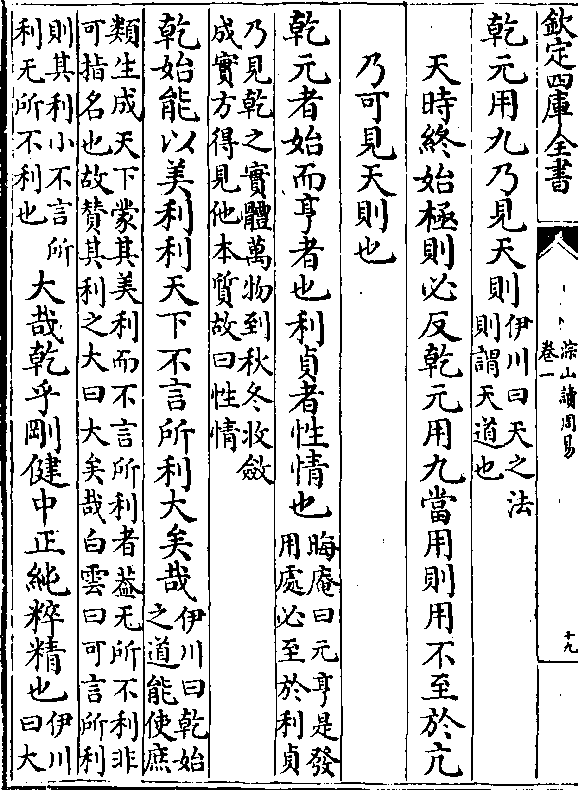 欽定四庫全書
淙山讀周易
卷一
十九
乾元用九乃見天則伊川曰天之法
則謂天道也
天時終始極則必反乾元用九當用則用不至於亢
乃可見天則也
乾元者始而亨者也利貞者性情也晦庵曰元亨是發
用處必至於利貞
乃見乾之實體萬物到秋冬收斂
成實方得見他本質故曰性情
乾始能以美利利天下不言所利大矣哉伊川曰乾始
之道能使庶
類生成天下蒙其美利而不言所利者葢无所不利非
可指名也故贊其利之大曰大矣哉白雲曰可言所利
則其利小不言所
利无所不利也
大哉乾乎剛健中正純粹精也伊川
曰大